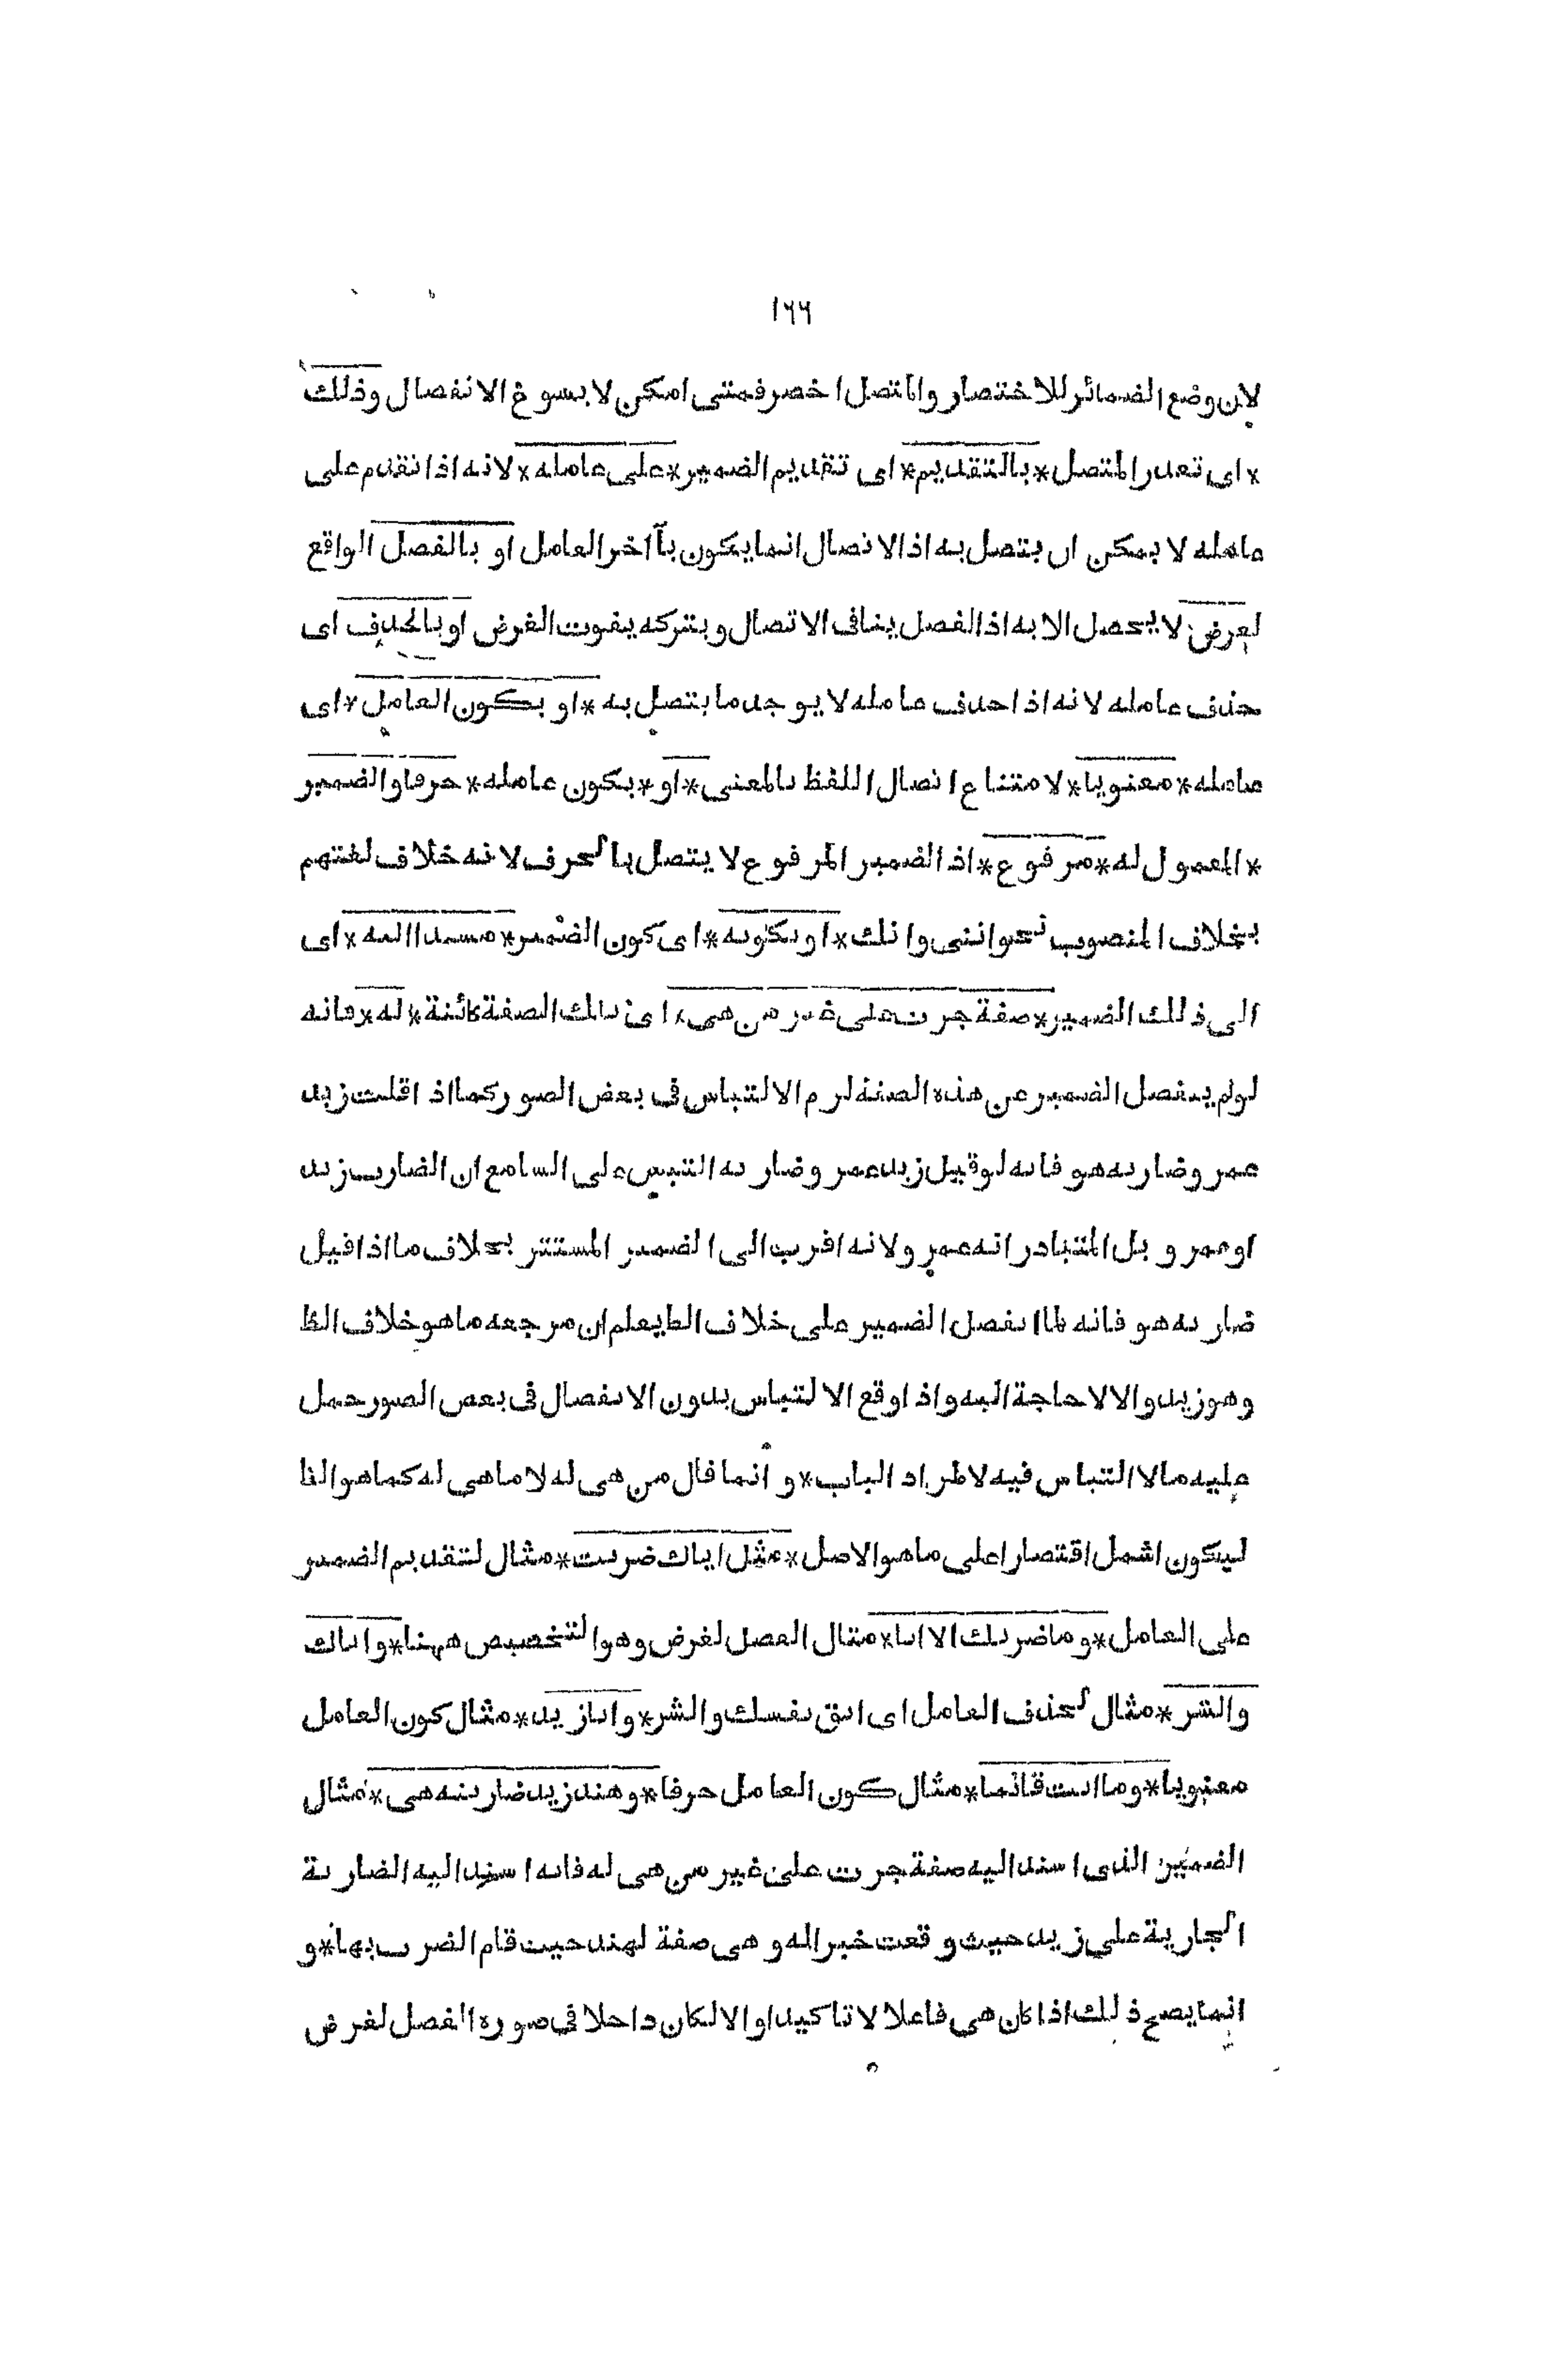 ١٦٦
لان وضع الضمائر للاختصار والمتصل اخصر فمتى امكن لا يسوغ الانفصال وذلك
* اى تعذر المتصل * بالتقديم * اى تقديم الضمير * على عامله * لانه اذا تقدم على
عامله لا يمكن ان يتصل به اذ الاتصال انما يكون بآخر العامل او بالفصل الواقع
لغرض لا يحصل الا به اذ الفصل ينافى الاتصال وبتركه يفوت الغرض او بالحذف اى
حذف عامله لانه اذا حذف عامله لا يوجد ما يتصل به * او بكون العامل * اى
عامله * معنويا * لامتناع اتصال اللفظ بالمعنى * او * يكون عامله * حرفا والضمير
* المعمول له * مرفوع * اذ الضمير المرفوع لا يتصل بالحرف لانه خلاف لغتهم
بخلاف المنصوب نحو اننى وانك * او بكونه * اى كون الضمير * مسندا اليه * اى
الى ذلك الضمير * صفة جرت على غير من هى * اى تلك الصفة كائنة * له * فانه
لو لم ينفصل الضمير عن هذه الصفة لزم الالتباس فى بعض الصور كما اذا قلت زيد
عمر وضاربه هو فانه لو قيل زيد عمر وضاربه التبس على السامع ان الضارب زيد
او عمر و بل المتبادر انه عمر ولانه اقرب الى الضمير المستتر بخلاف ما اذا قيل
ضاربه هو فانه لما انفصل الضمير على خلاف الظ يعلم ان مرجعه ما هو خلاف الظ
وهو زيد والا لا حاجة اليه واذا وقع الالتباس بدون الانفصال فى بعض الصور حمل
عليه مالا التباس فيه لاطراد الباب * و انما قال من هى له لا ما هى له كما هو الظا
ليكون اشمل اقتصارا على ما هو الاصل * مثل اياك ضربت * مثال لتقديم الضمير
على العامل * وما ضربك الا انا * مثال الفصل لغرض وهو التخصيص ههنا * واياك
والشر * مثال لحذف العامل اى اتق نفسك والشر * وانا زيد * مثال كون العامل
معنويا * وما انت قائما * مثال كون العامل حرفا * وهند زيد ضاربته هى * مثال
الضمير الذى اسند اليه صفة جرت على غير من هى له فانه اسند اليه الضاربة
الجارية على زيد حيث وقعت خبرا له و هى صفة لهند حيث قام الضرب بها * و
انما يصح ذلك اذا كان هى فاعلا لا تاكيدا والا لكان داخلا فى صورة الفصل لغرض